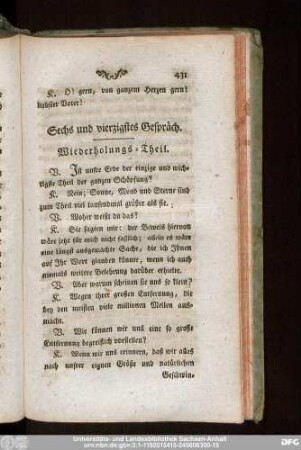 431
K. O! gern, von ganzem Herzen gern!
liebster Vater!
Sechs und vierzigstes Gespräch.
Wiederholungs-Theil.
V. Ist unsre Erde der einzige und wich-
tigste Theil der ganzen Schöpfung?
K. Nein; Sonne, Mond und Sterne sind
zum Theil viel tausendmal größer als sie.
V. Woher weißt du das?
K. Sie sagten mir: der Beweis hiervon
wäre jetzt für mich nicht faßlich; allein es wäre
eine längst ausgemachte Sache, die ich Ihnen
auf Ihr Wort glauben könnte, wenn ich auch
niemals weitere Belehrung darüber erhielte.
V. Aber warum scheinen sie uns so klein?
K. Wegen ihrer großen Entfernung, die
bey den meisten viele millionen Meilen aus-
macht.
V. Wie können wir uns eine so große
Entfernung begreiflich vorstellen?
K. Wenn wir uns erinnern, daß wir alles
nach unsrer eignen Größe und natürlichen
Geschwin-
Universitäts- und Landesbibliothek Sachsen-Anhalt
urn:nbn:de:gbv:3:1-1192015415-249606300-15
DFG